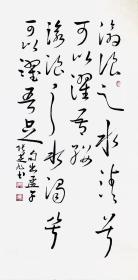 滄浪之水清兮
可以濯吾纓
滄浪之水濁兮
可以濯吾足